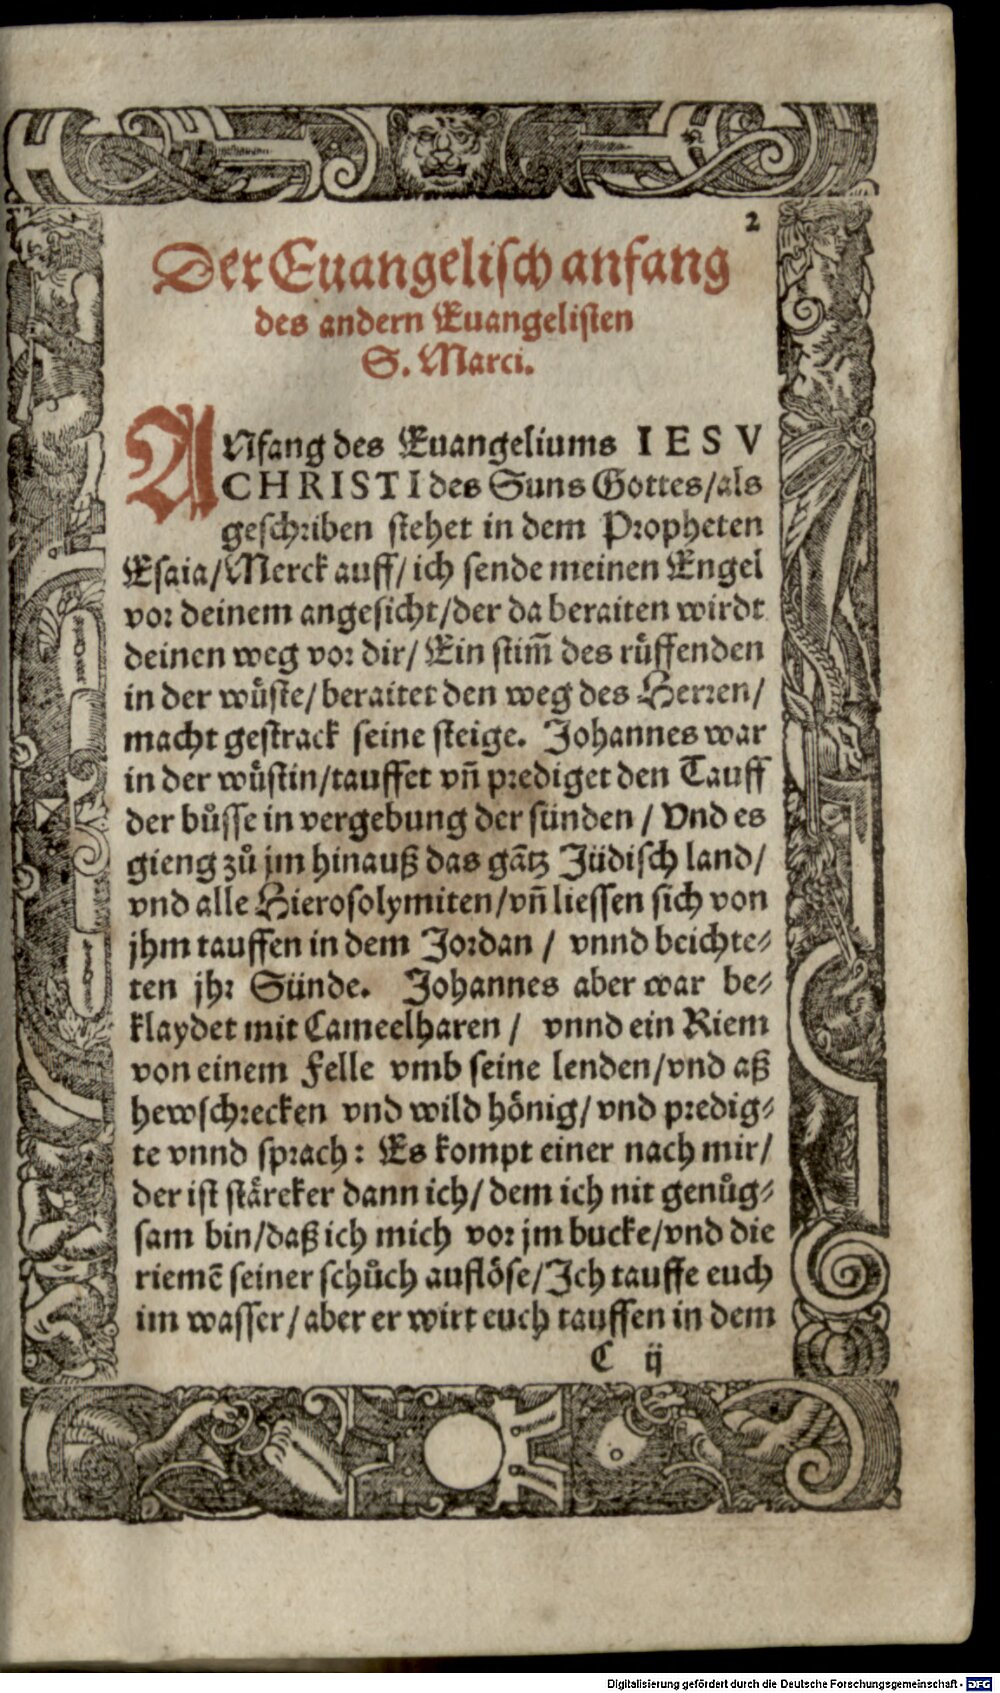 2
Der Euangelisch anfang
des andern Euangelisten
S. Marci.
ANfang des Euangeliums IESV
CHRISTI des Suns Gottes/als
geschriben stehet in dem Propheten
Esaia/Merck auff/ich sende meinen Engel
vor deinem angesicht/der da beraiten wirdt
deinen weg vor dir/Ein stim̃ des rüffenden
in der wüste/beraitet den weg des Herren/
macht gestrack seine steige. Johannes war
in der wüstin/tauffet vñ prediget den Tauff
der bůsse in vergebung der sünden/Vnd es
gieng zů jm hinauß das gātz Jüdisch land/
vnd alle Hierosolymiten/vñ liessen sich von
jhm tauffen in dem Jordan/ vnnd beichte⸗
ten jhr Sünde. Johannes aber war be⸗
klaydet mit Cameelharen/ vnnd ein Riem
von einem Felle vmb seine lenden/vnd aß
hewschrecken vnd wild hönig/vnd predig⸗
te vnnd sprach: Es kompt einer nach mir/
der ist stärcker dann ich/dem ich nit genůg⸗
sam bin/daß ich mich vor jm bucke/vnd die
riemē seiner schůch auflöse/Ich tauffe euch
im wasser/aber er wirt euch tauffen in dem
C ij
Digitalisierung gefördert durch die Deutsche Forschungsgemeinschaft - DFG